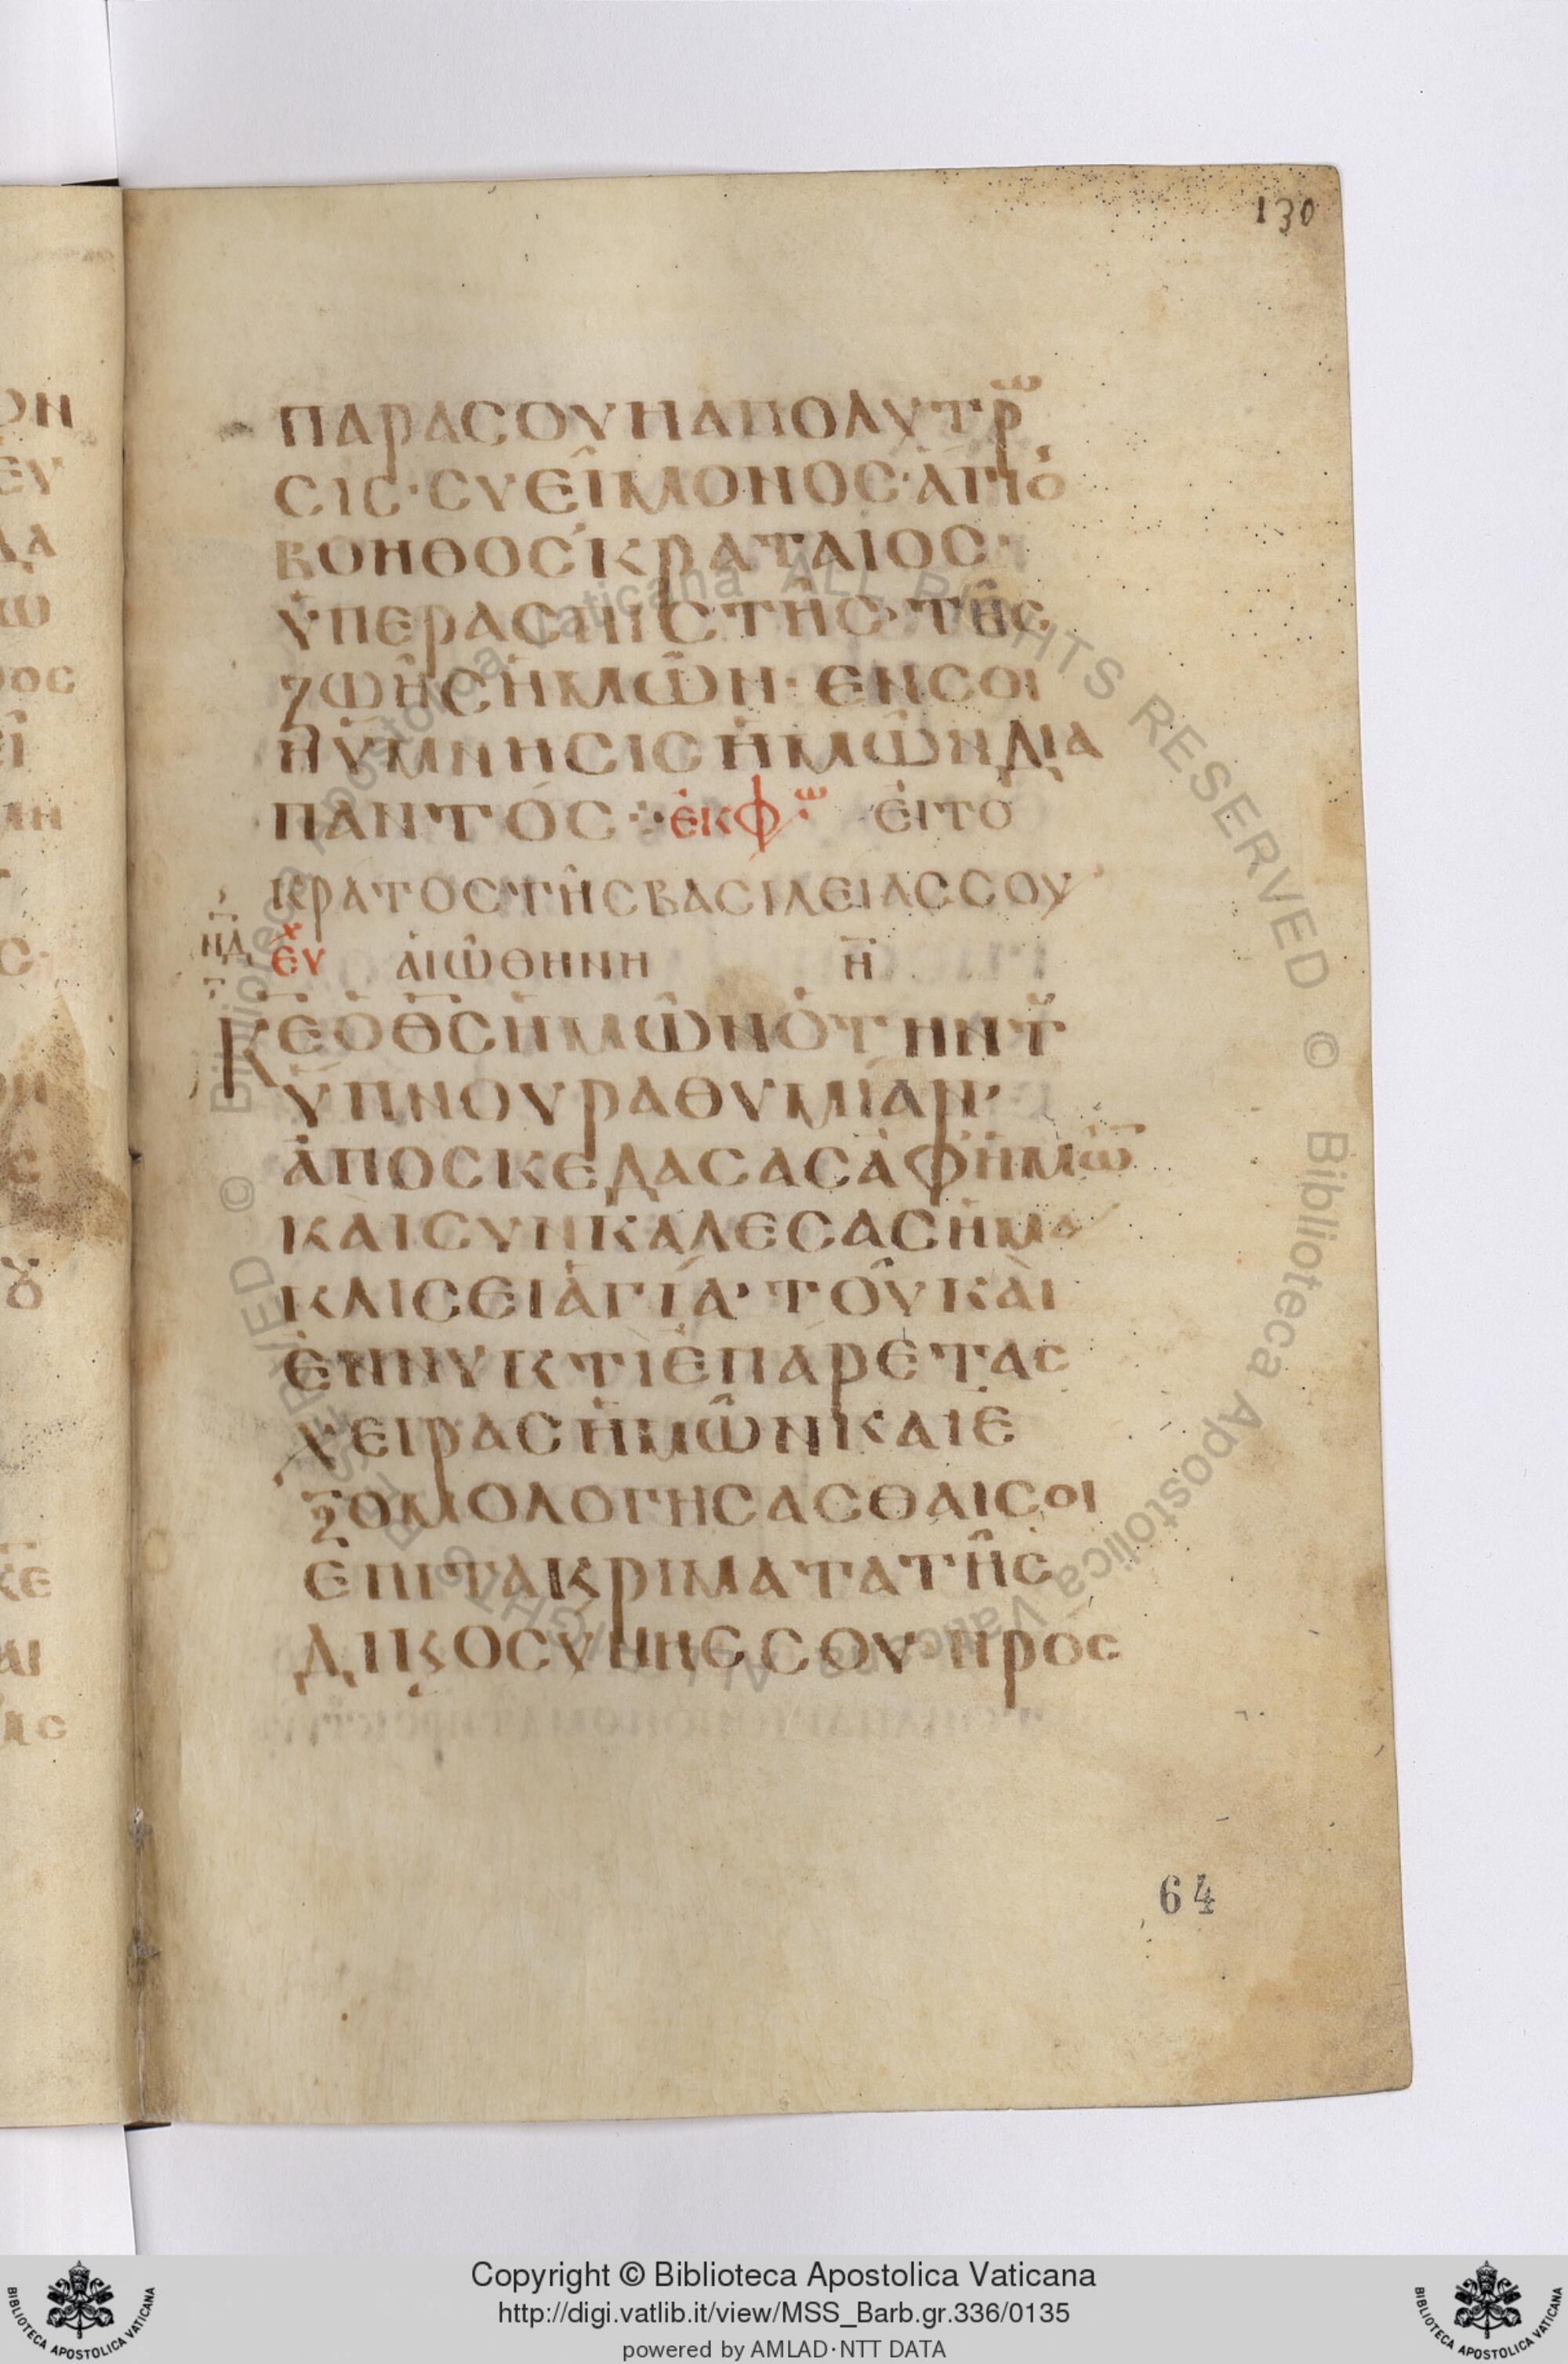 130
ΠΑΡΑCΟΥΗΑΠΟΛΥΤΡω
CΙC·CΥΕΙΜΟΝΟC·ΑΓΙΟ
ΒΟΗΘΟCΚΡΑΤΑΙΟC·
ΥΠΕΡΑCΠΙCΤΗC·ΤΗC
ΖΩΗCΗΜΩΝ·ΕΝCΟΙ
ΗΥΜΝΗCΙCΗΜΩΝΔΙΑ
ΠΑΝΤΟC·:·ΕΚΦω ΕΙΤΟ
ΚΡΑΤΟCΤΗCΒΑCΙΛΕΙΑCCΟΥ
ΕΥΧ ΑΙΩΘΗΝΗ Η
ΚΕΟΘCΗΜΩΝΟΤΗΝΤȣ
ΥΠΝΟΥΡΑΘΥΜΙΑΝ·
ΑΠΟCΚΕΔΑCΑCΑΦΗΜΩ
ΚΑΙCΥΝΚΑΛΕCΑCΗΜΑ
ΚΛΙCΕΙΑΓΙΑ·ΤΟΥΚΑΙ
ΕΝΝΥΚΤΙΕΠΑΡΕΤΑC
ΧΕΙΡΑCΗΜΩΝΚΑΙΕ
ΞΟΜΟΛΟΓΗCΑCΘΑΙCΟΙ
ΕΠΙΤΑΚΡΙΜΑΤΑΤΗC
ΔΙΚΟCΥΝΗCCΟΥ·ΠΡΟC
64
Copyright © Biblioteca Apostolica Vaticana
http://digi.vatlib.it/view/MSS_Barb.gr.336/0135
powered by AMLAD·NTT DATA
BIBLIOTECA APOSTOLICA VATICANA
BIBLIOTECA APOSTOLICA VATICANA
© Biblioteca Apostolica Vaticana ALL RIGHTS RESERVED
© Biblioteca Apostolica Vaticana ALL RIGHTS RESERVED